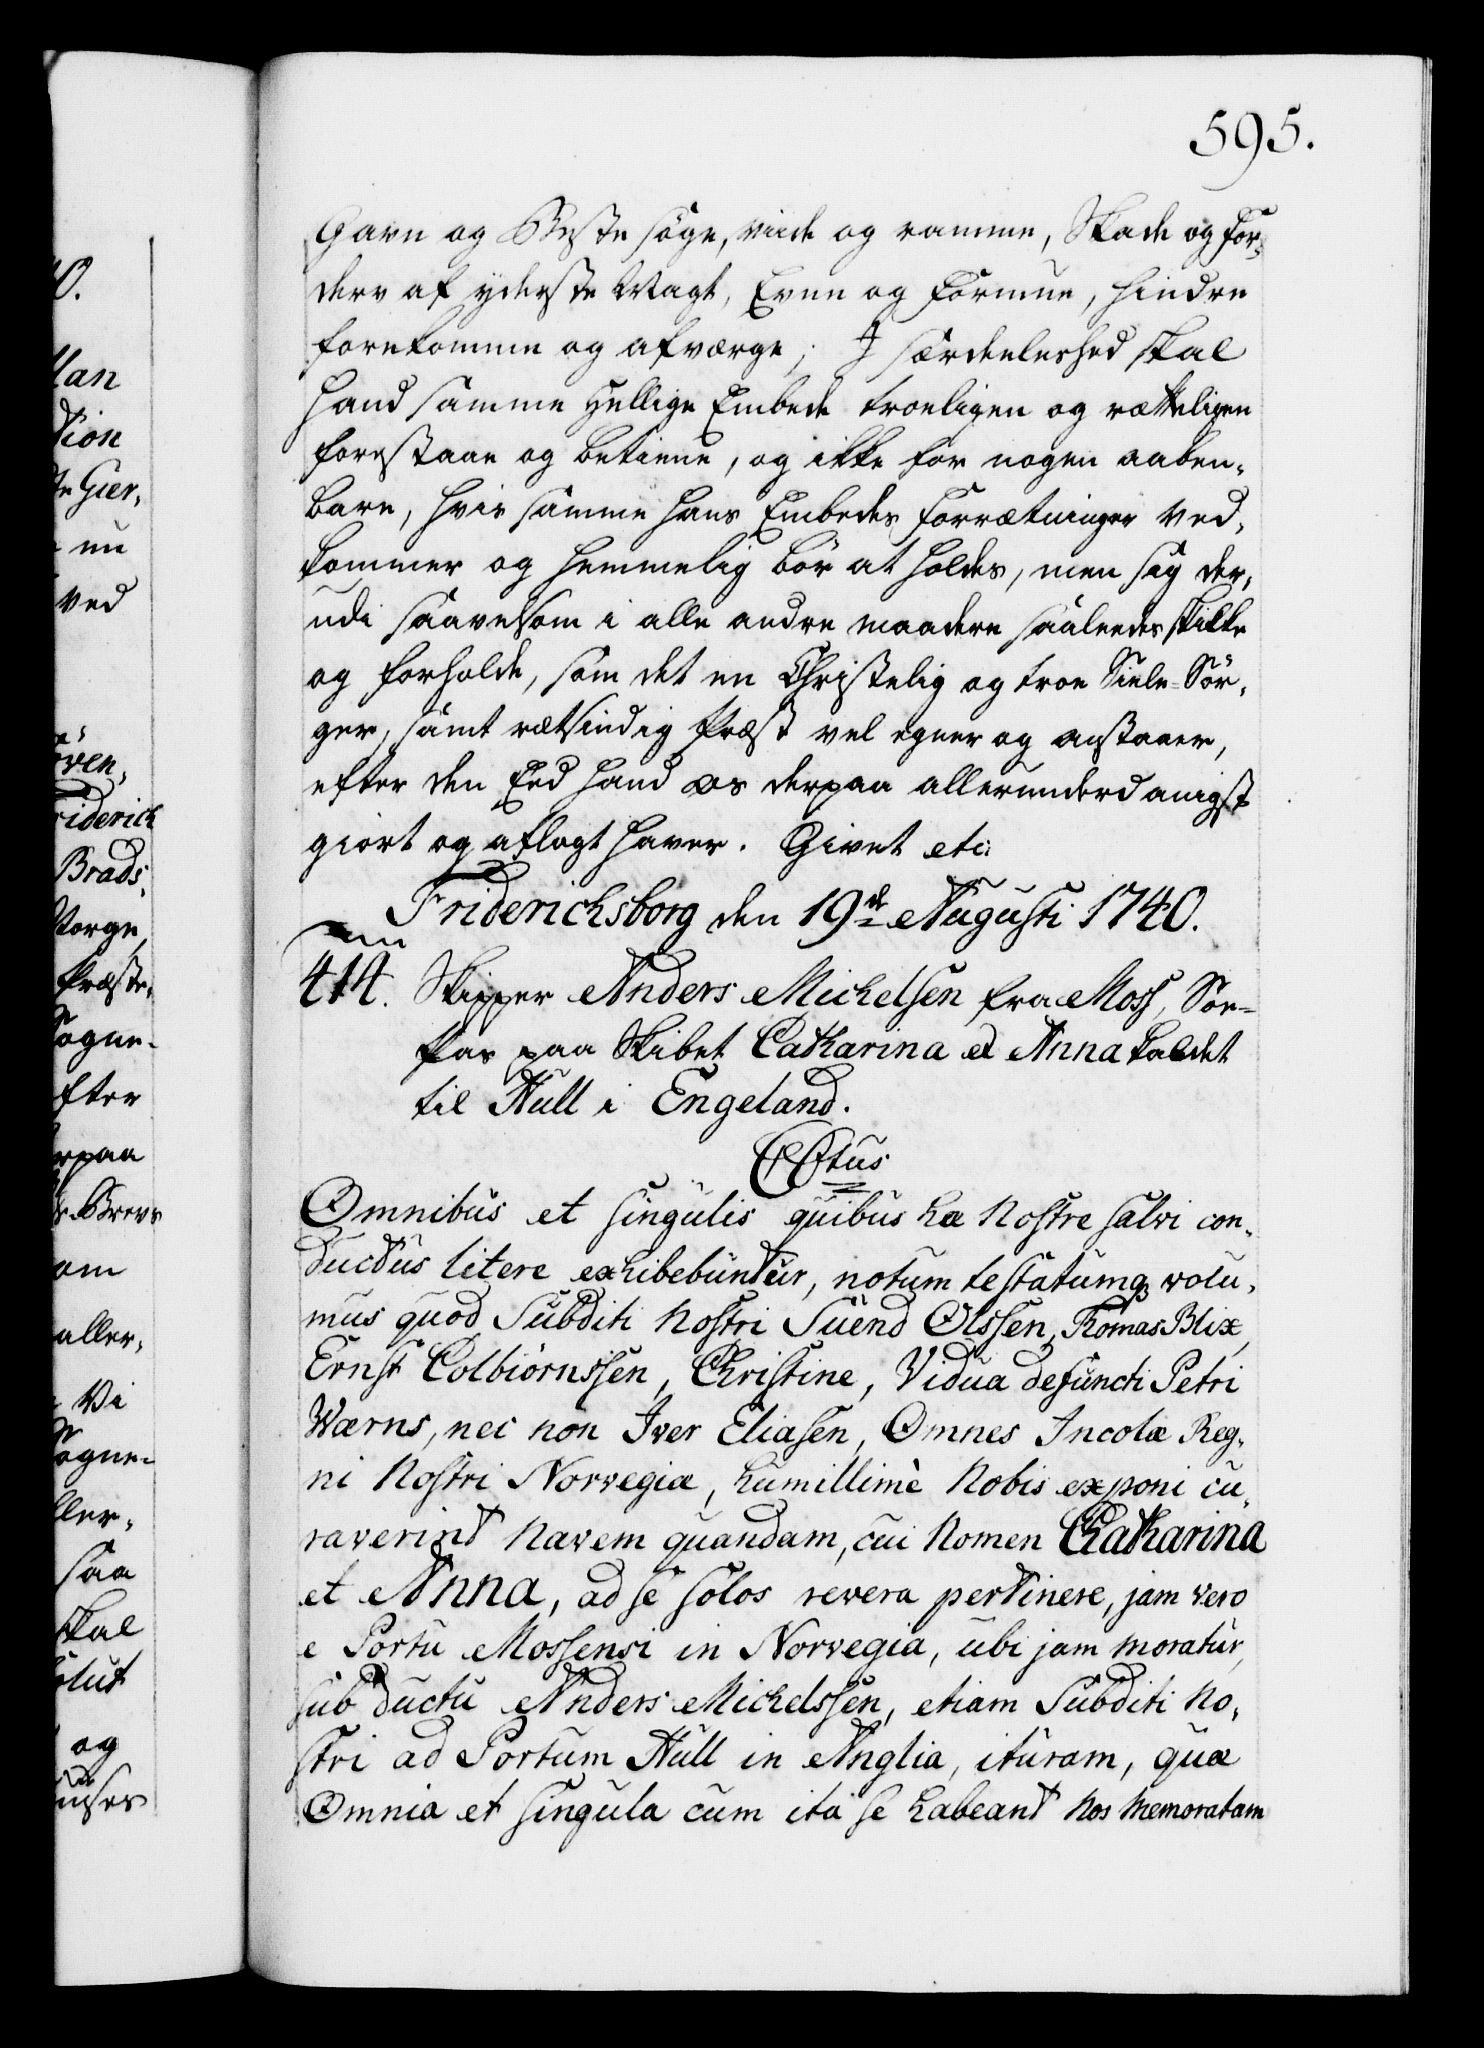 595.
Gavn og Beste søge, viide og ramme, Skade og for-
derv af yderste Magt, Evne og Formue, hindre
forekomme og afværge; I særdeeleshed skal
Hand samme Hellige Embede troeligen og rætteligen
forestaae og betiene, og ikke for nogen aaben-
bare, hvis samme hans Embedes Forrætninger ved-
kommer og hemmelig bör at holdes, men sig der-
udi saavelsom i alle andre maadere saaleedes skikke
og forholde, som det en Christelig og troe Siele-Sör-
ger, samt rætsindig Præst vel egner og anstaaer,
efter den Eed hand os derpaa allerunderdanigst
giort og aflagt haver. Givet etc:
Friderichsborg den 19de Augusti 1740.
414. Skipper Anders Michelsen fra Moss, Söe-
Pas paa Skibet Catharina et Anna kaldet
til Hull i Engeland.
CCtus
Omnibus et singulis quibus hæ Nostre salvi con-
ductus litere exhibebuntur, notum testatumq volu-
mus quod Subditi Nostri Suend Olssen, Thomas Blix,
Ernst Colbiörnssen, Christine, Vidua defuncti Petri
Wærns, nec non Iver Eliasen, Omnes Incolæ Reg-
ni Nostri Norvegiæ, humillimè Nobis exponi cu-
raverint Navem quandam, cui Nomen Chatharina
et Anna, ad se solos revera pertinere, jam vero
e Portu Mossensi in Norvegia, ubi jam moratur,
sub ductu Anders Michelssen, etiam Subditi No-
stri ad Portum Hull in Anglia, ituram, quæ
Omnia et singula cum ita se habeant Nos memoratam